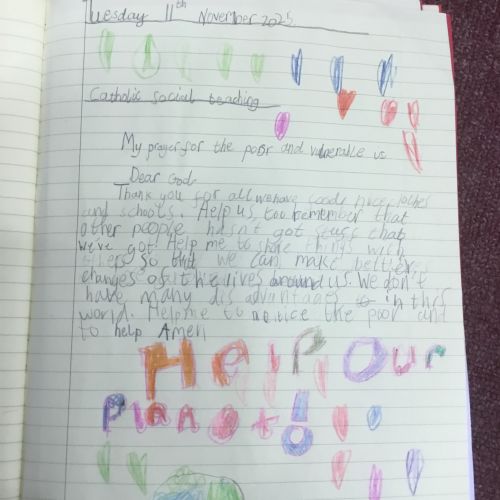 Tuesday 11th November 2025.
Catholic social teaching
My prayer for the poor and vulnerable us
Dear God
Thank you for all we have clothes
and schools. Help us too remember that
other people hasn't got stuff that
we've got. Help me to share things with
so that we can make better
changes of the lives around us. We don't
have many dis advantages in this
world. Help me to notice the poor and
to help Amen
Help Our
Planet!